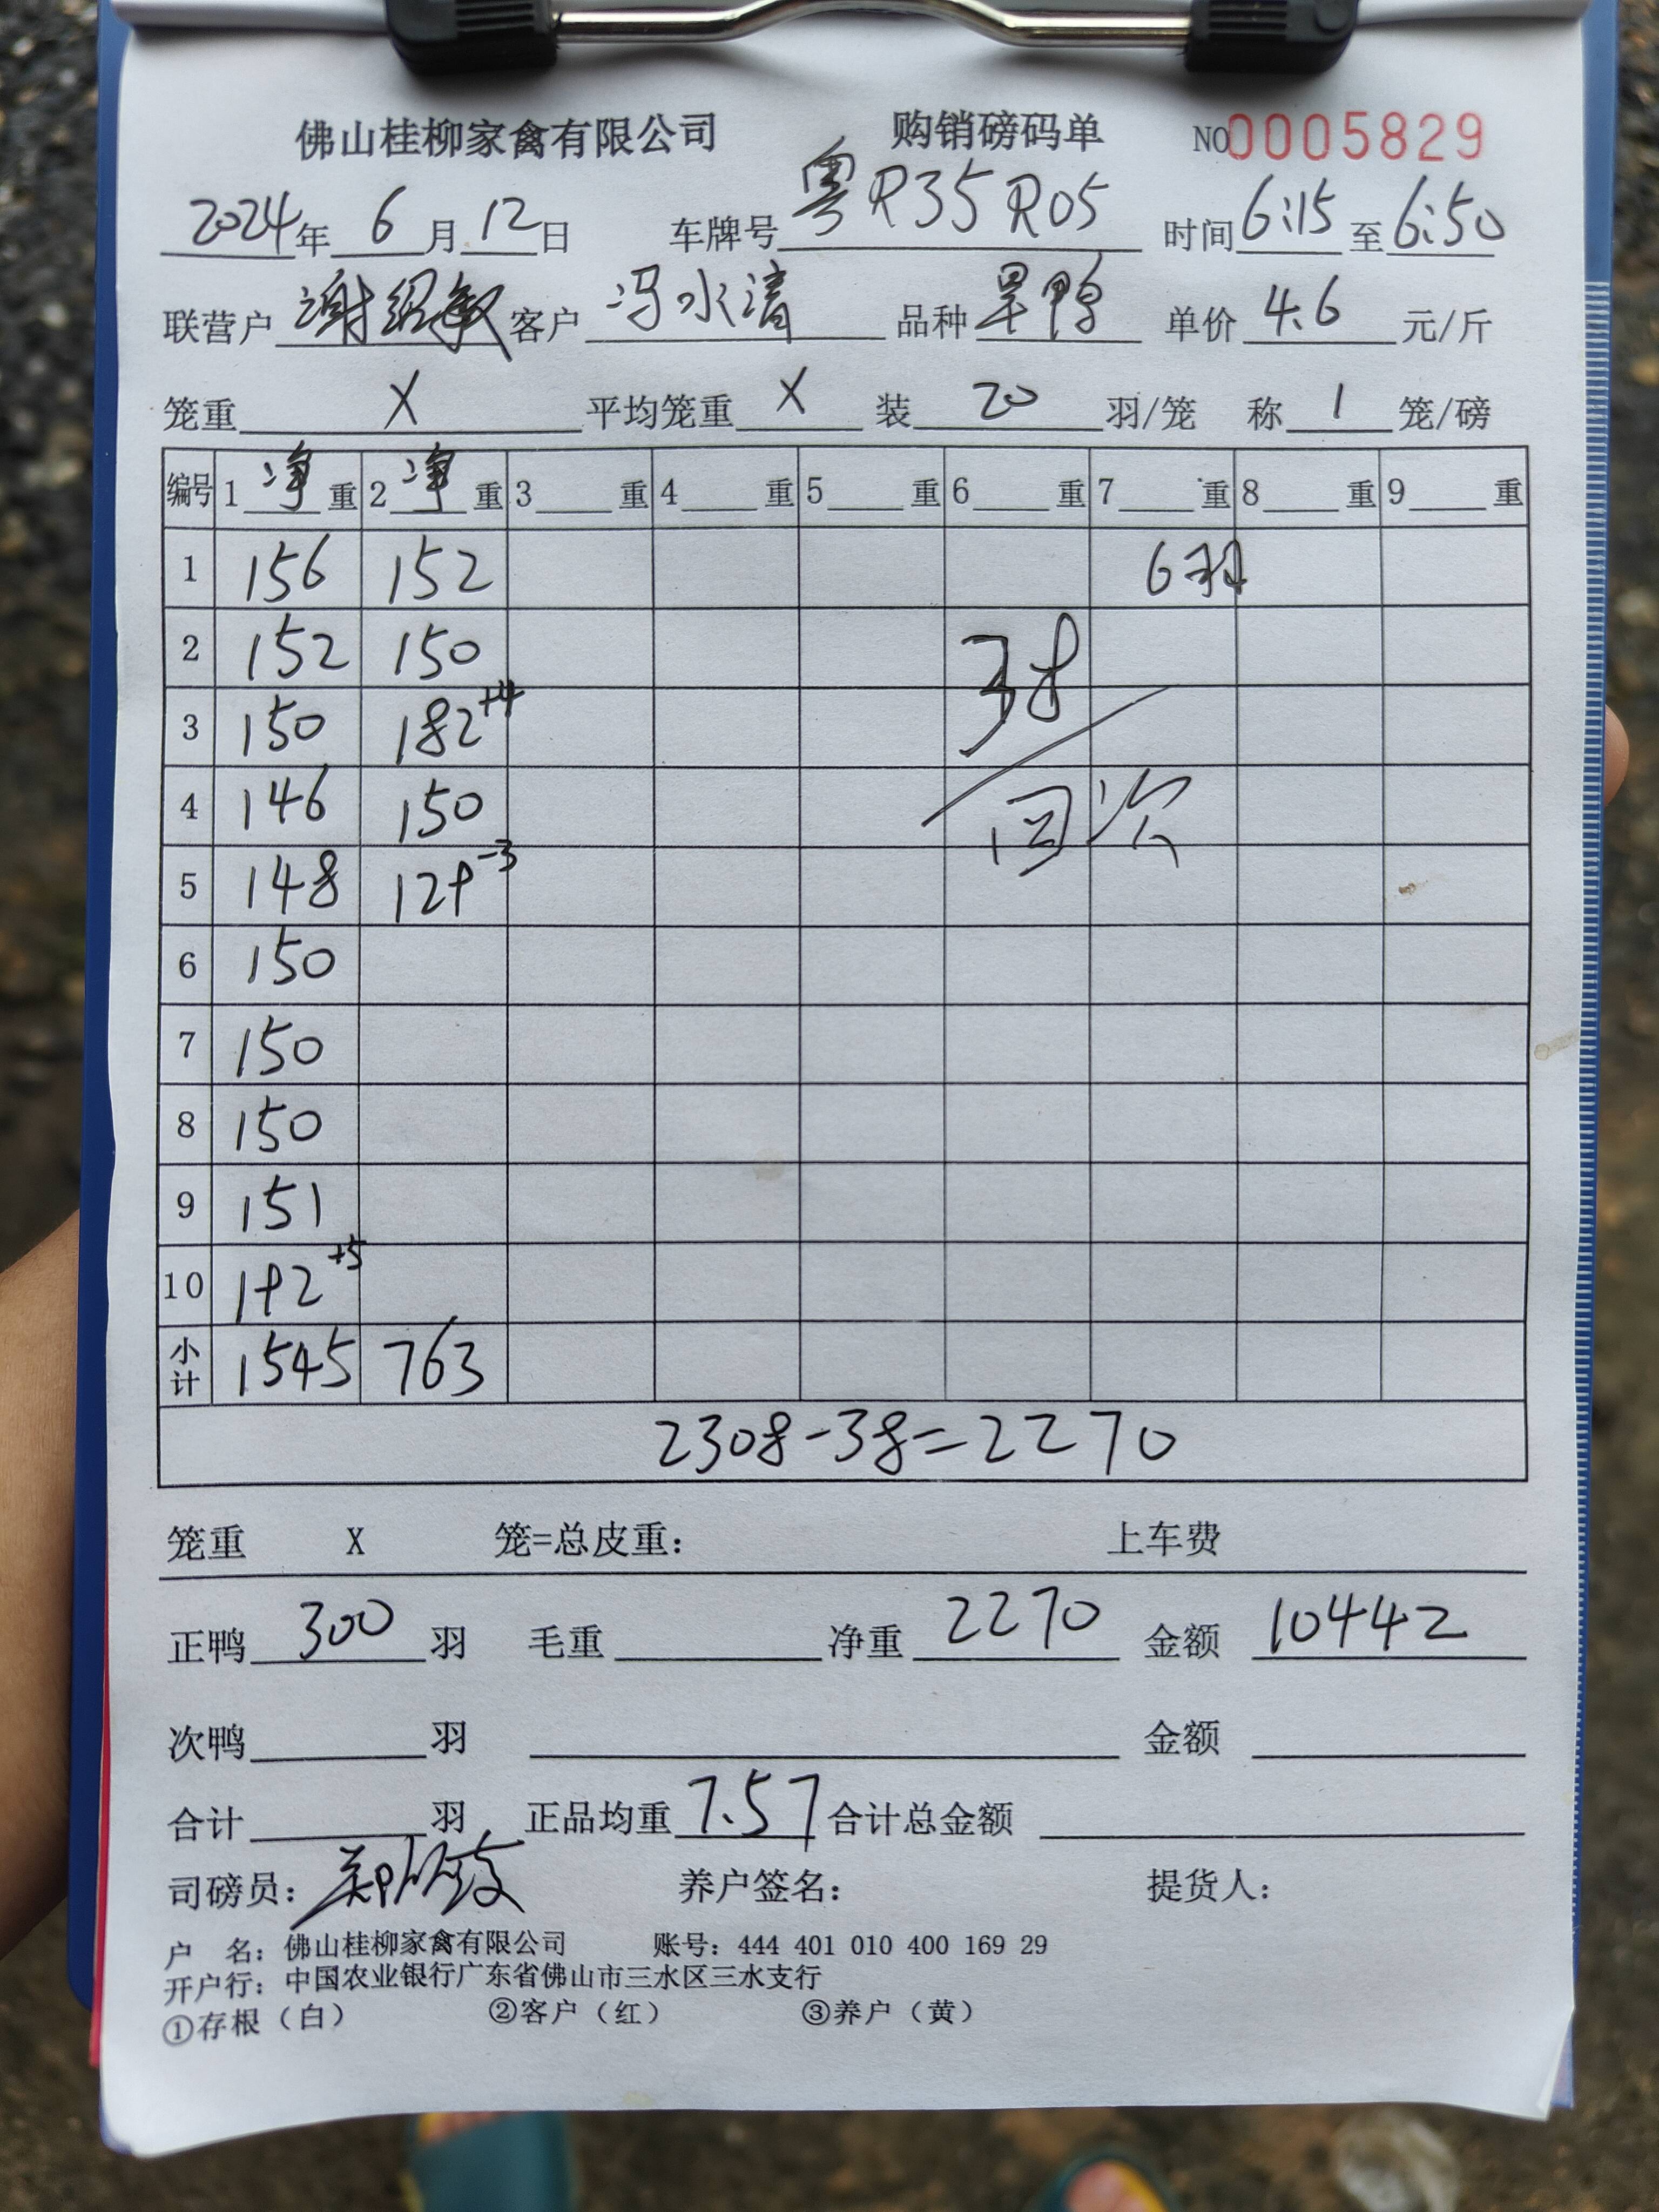 佛山桂柳家禽有限公司 购销磅码单 NO0005829
2024年 6月 12日 车牌号 粤R35R05 时间 6:15 至 6:50
联营户 谢绍敏 客户 冯水清 品种 旱鸭 单价 4.6 元/斤
笼重 X 平均笼重 X 装 20 羽/笼 称 1 笼/磅
编号 1 净 重 2 净 重 3 重 4 重 5 重 6 重 7 重 8 重 9 重
1 156 152 6羽
2 152 150 38
3 150 182+4
4 146 150 回次
5 148 129-3
6 150
7 150
8 150
9 151
10 192+5
小计 1545 763
2308-38=2270
笼重 X 笼=总皮重: 上车费
正鸭 300 羽 毛重 净重 2270 金额 10442
次鸭 羽 金额
合计 羽 正品均重 7.57 合计总金额
司磅员: 养户签名: 提货人:
户 名: 佛山桂柳家禽有限公司 账号: 444 401 010 400 169 29
开户行: 中国农业银行广东省佛山市三水区三水支行
①存根（白） ②客户（红） ③养户（黄）